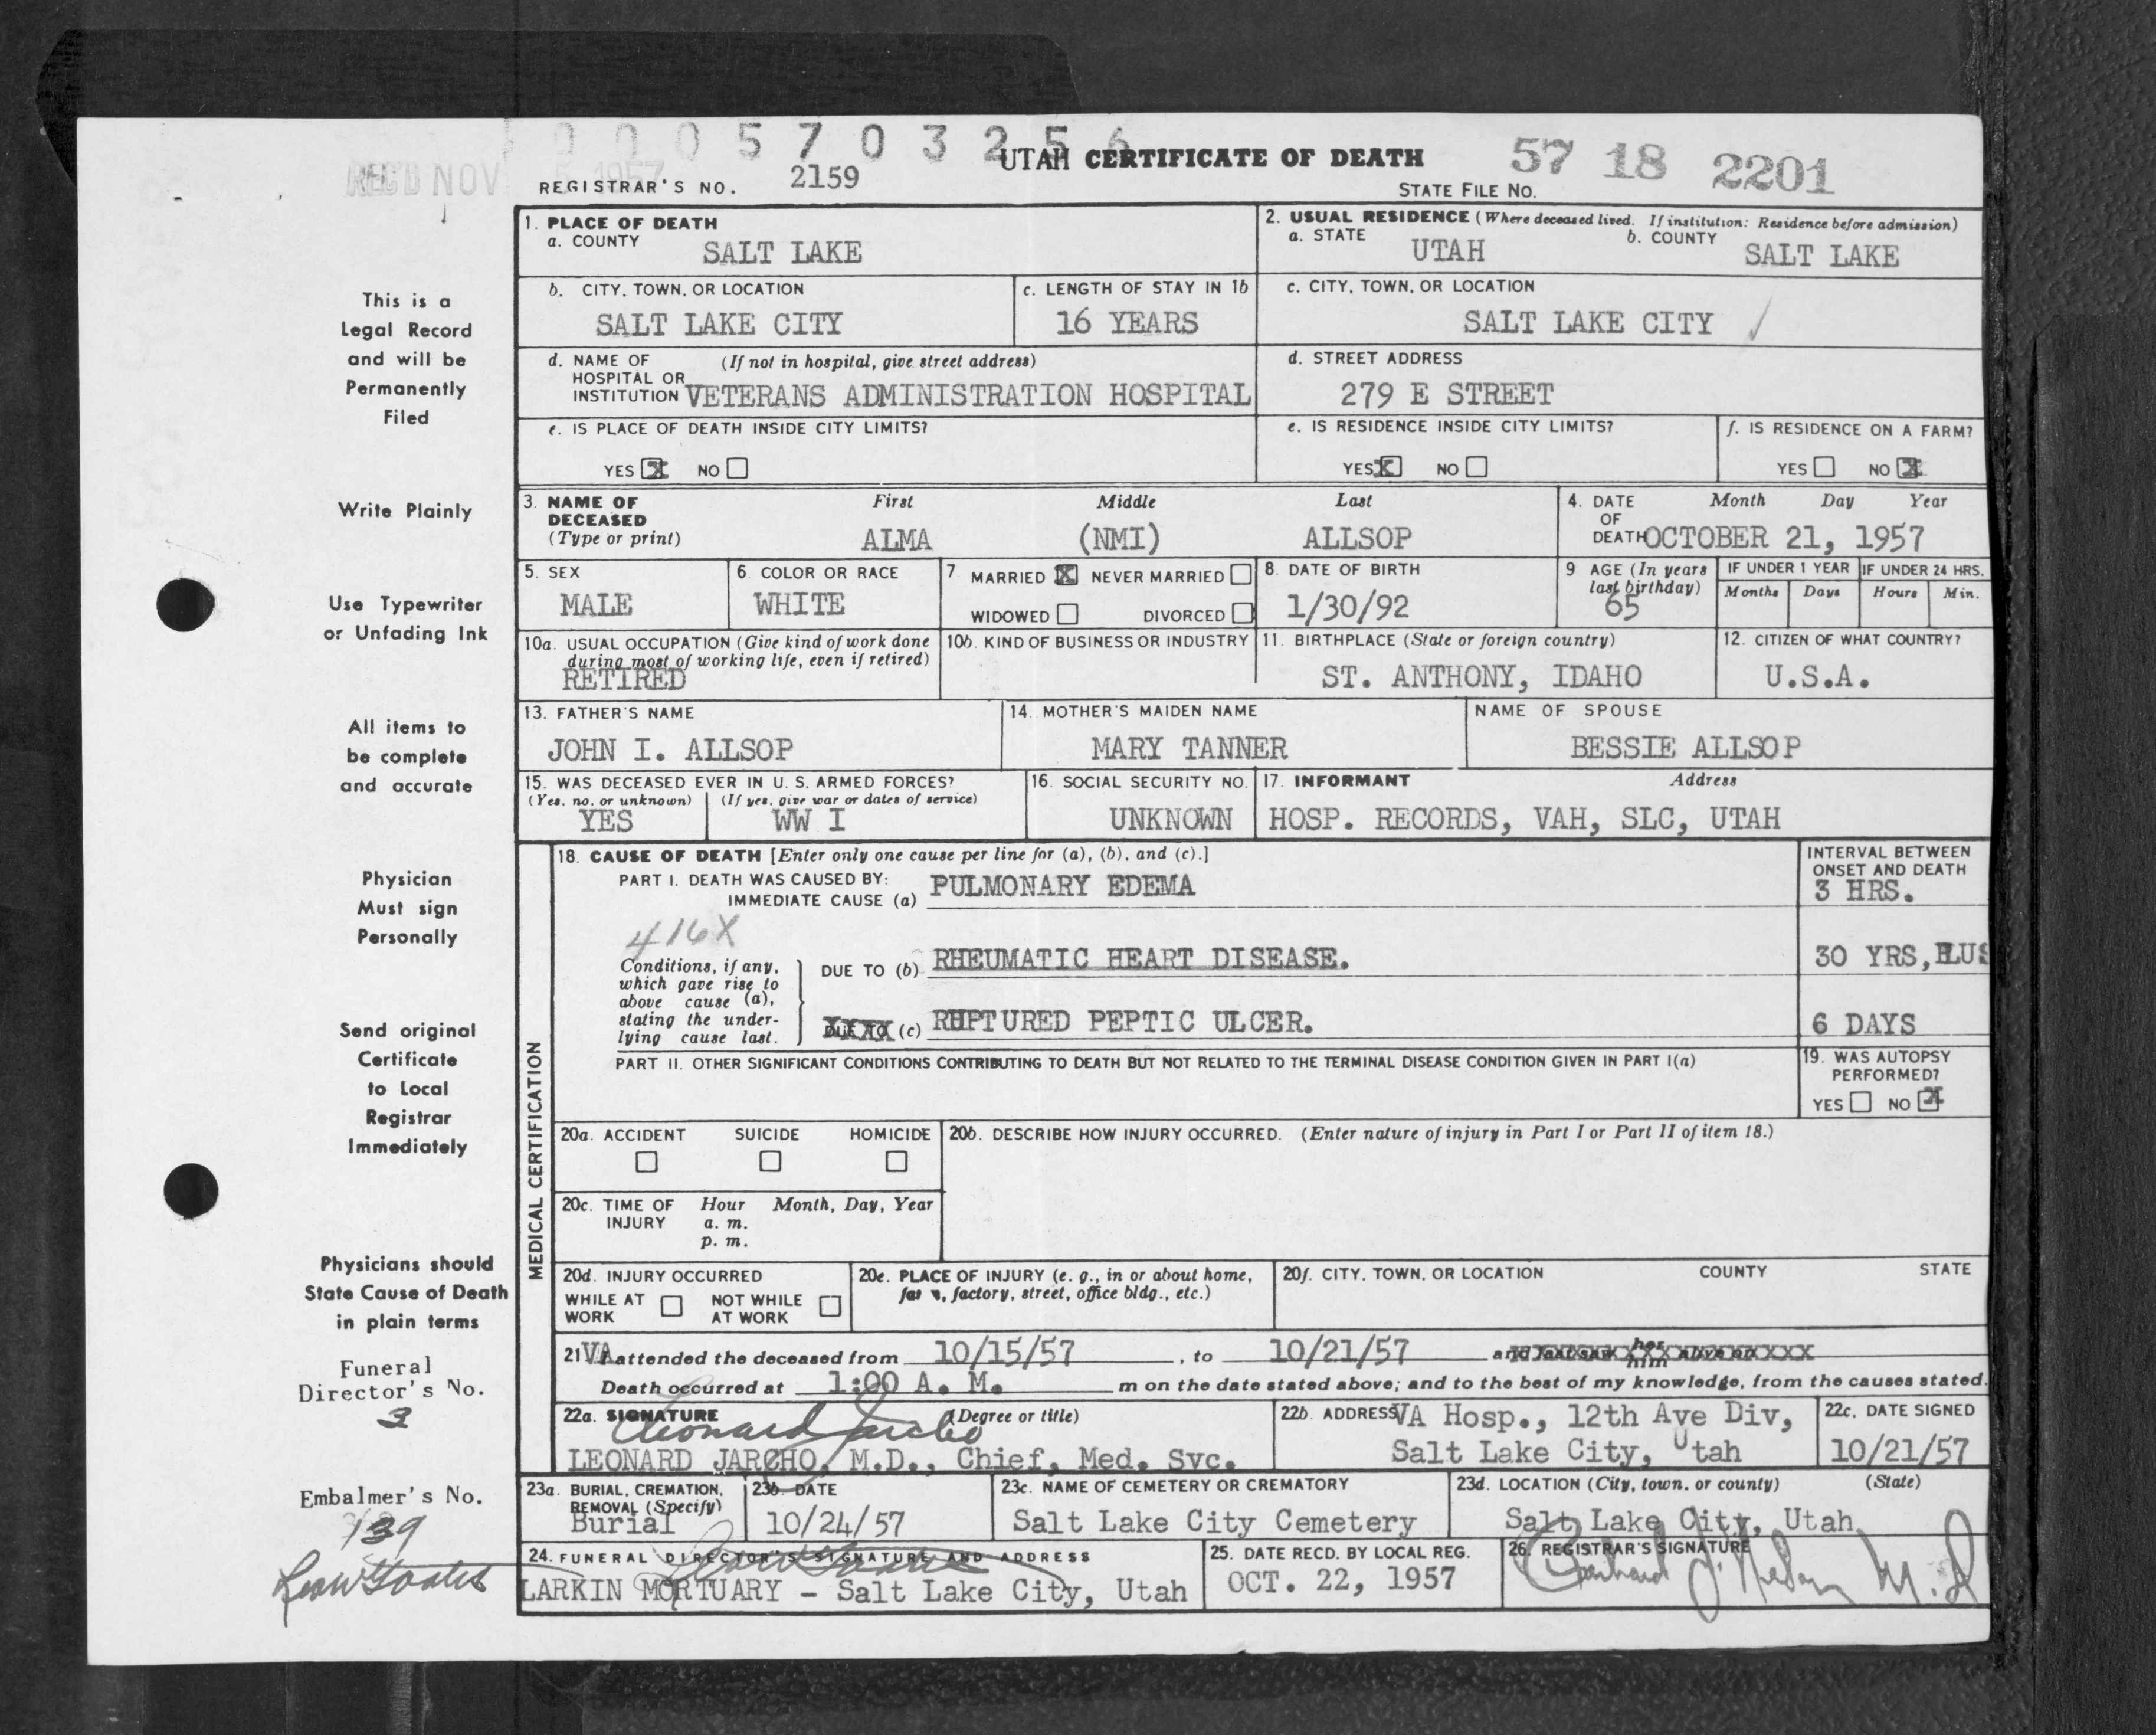 0 0 0 5 7 0 3 2 5 6
REC'D NOV 5 1957
UTAH CERTIFICATE OF DEATH
57 18 2201
REGISTRAR'S NO. 2159
STATE FILE NO.
1. PLACE OF DEATH
a. COUNTY
SALT LAKE
2. USUAL RESIDENCE (Where deceased lived. If institution: Residence before admission)
a. STATE
UTAH
b. COUNTY
SALT LAKE
b. CITY, TOWN, OR LOCATION
SALT LAKE CITY
c. LENGTH OF STAY IN 1b
16 YEARS
c. CITY, TOWN, OR LOCATION
SALT LAKE CITY
d. NAME OF (If not in hospital, give street address)
HOSPITAL OR
INSTITUTION VETERANS ADMINISTRATION HOSPITAL
d. STREET ADDRESS
279 E STREET
e. IS PLACE OF DEATH INSIDE CITY LIMITS?
YES X NO
e. IS RESIDENCE INSIDE CITY LIMITS?
YES X NO
f. IS RESIDENCE ON A FARM?
YES NO X
3. NAME OF
DECEASED
(Type or print)
First
ALMA
Middle
(NMI)
Last
ALLSOP
4. DATE
OF
DEATH
Month Day Year
OCTOBER 21, 1957
5. SEX
MALE
6. COLOR OR RACE
WHITE
7 MARRIED X NEVER MARRIED
WIDOWED DIVORCED
8. DATE OF BIRTH
1/30/92
9 AGE (In years
last birthday)
65
IF UNDER 1 YEAR
Months Days
IF UNDER 24 HRS.
Hours Min.
10a. USUAL OCCUPATION (Give kind of work done
during most of working life, even if retired)
RETIRED
10b. KIND OF BUSINESS OR INDUSTRY
11. BIRTHPLACE (State or foreign country)
ST. ANTHONY, IDAHO
12. CITIZEN OF WHAT COUNTRY?
U.S.A.
13. FATHER'S NAME
JOHN I. ALLSOP
14. MOTHER'S MAIDEN NAME
MARY TANNER
NAME OF SPOUSE
BESSIE ALLSOP
15. WAS DECEASED EVER IN U. S. ARMED FORCES?
(Yes, no, or unknown) (If yes, give war or dates of service)
YES WW I
16. SOCIAL SECURITY NO.
UNKNOWN
17. INFORMANT Address
HOSP. RECORDS, VAH, SLC, UTAH
MEDICAL CERTIFICATION
18. CAUSE OF DEATH [Enter only one cause per line for (a), (b), and (c).]
PART I. DEATH WAS CAUSED BY:
IMMEDIATE CAUSE (a) PULMONARY EDEMA
INTERVAL BETWEEN
ONSET AND DEATH
3 HRS.
416X
Conditions, if any,
which gave rise to
above cause (a),
stating the under-
lying cause last.
DUE TO (b) RHEUMATIC HEART DISEASE.
30 YRS, PLUS
DUE TO (c) RUPTURED PEPTIC ULCER.
6 DAYS
PART II. OTHER SIGNIFICANT CONDITIONS CONTRIBUTING TO DEATH BUT NOT RELATED TO THE TERMINAL DISEASE CONDITION GIVEN IN PART I(a)
19. WAS AUTOPSY
PERFORMED?
YES NO X
20a. ACCIDENT SUICIDE HOMICIDE
20b. DESCRIBE HOW INJURY OCCURRED. (Enter nature of injury in Part I or Part II of item 18.)
20c. TIME OF Hour Month, Day, Year
INJURY a. m.
p. m.
20d. INJURY OCCURRED
WHILE AT
WORK
NOT WHILE
AT WORK
20e. PLACE OF INJURY (e. g., in or about home,
factory, street, office bldg., etc.)
20f. CITY, TOWN, OR LOCATION COUNTY STATE
21 VA attended the deceased from 10/15/57, to 10/21/57 and last saw her him alive on
Death occurred at 1:00 A. M. m on the date stated above; and to the best of my knowledge, from the causes stated.
22a. SIGNATURE (Degree or title)
Leonard Jarcho
LEONARD JARCHO, M.D., Chief, Med. Svc.
22b. ADDRESS VA Hosp., 12th Ave Div,
Salt Lake City, Utah
22c. DATE SIGNED
10/21/57
23a. BURIAL, CREMATION,
REMOVAL (Specify)
Burial
23b. DATE
10/24/57
23c. NAME OF CEMETERY OR CREMATORY
Salt Lake City Cemetery
23d. LOCATION (City, town, or county) (State)
Salt Lake City, Utah
24. FUNERAL DIRECTOR'S SIGNATURE AND ADDRESS
LARKIN MORTUARY - Salt Lake City, Utah
25. DATE RECD. BY LOCAL REG.
OCT. 22, 1957
26. REGISTRAR'S SIGNATURE
M.D
This is a
Legal Record
and will be
Permanently
Filed
Write Plainly
Use Typewriter
or Unfading Ink
All items to
be complete
and accurate
Physician
Must sign
Personally
Send original
Certificate
to Local
Registrar
Immediately
Physicians should
State Cause of Death
in plain terms
Funeral
Director's No.
3
Embalmer's No.
139